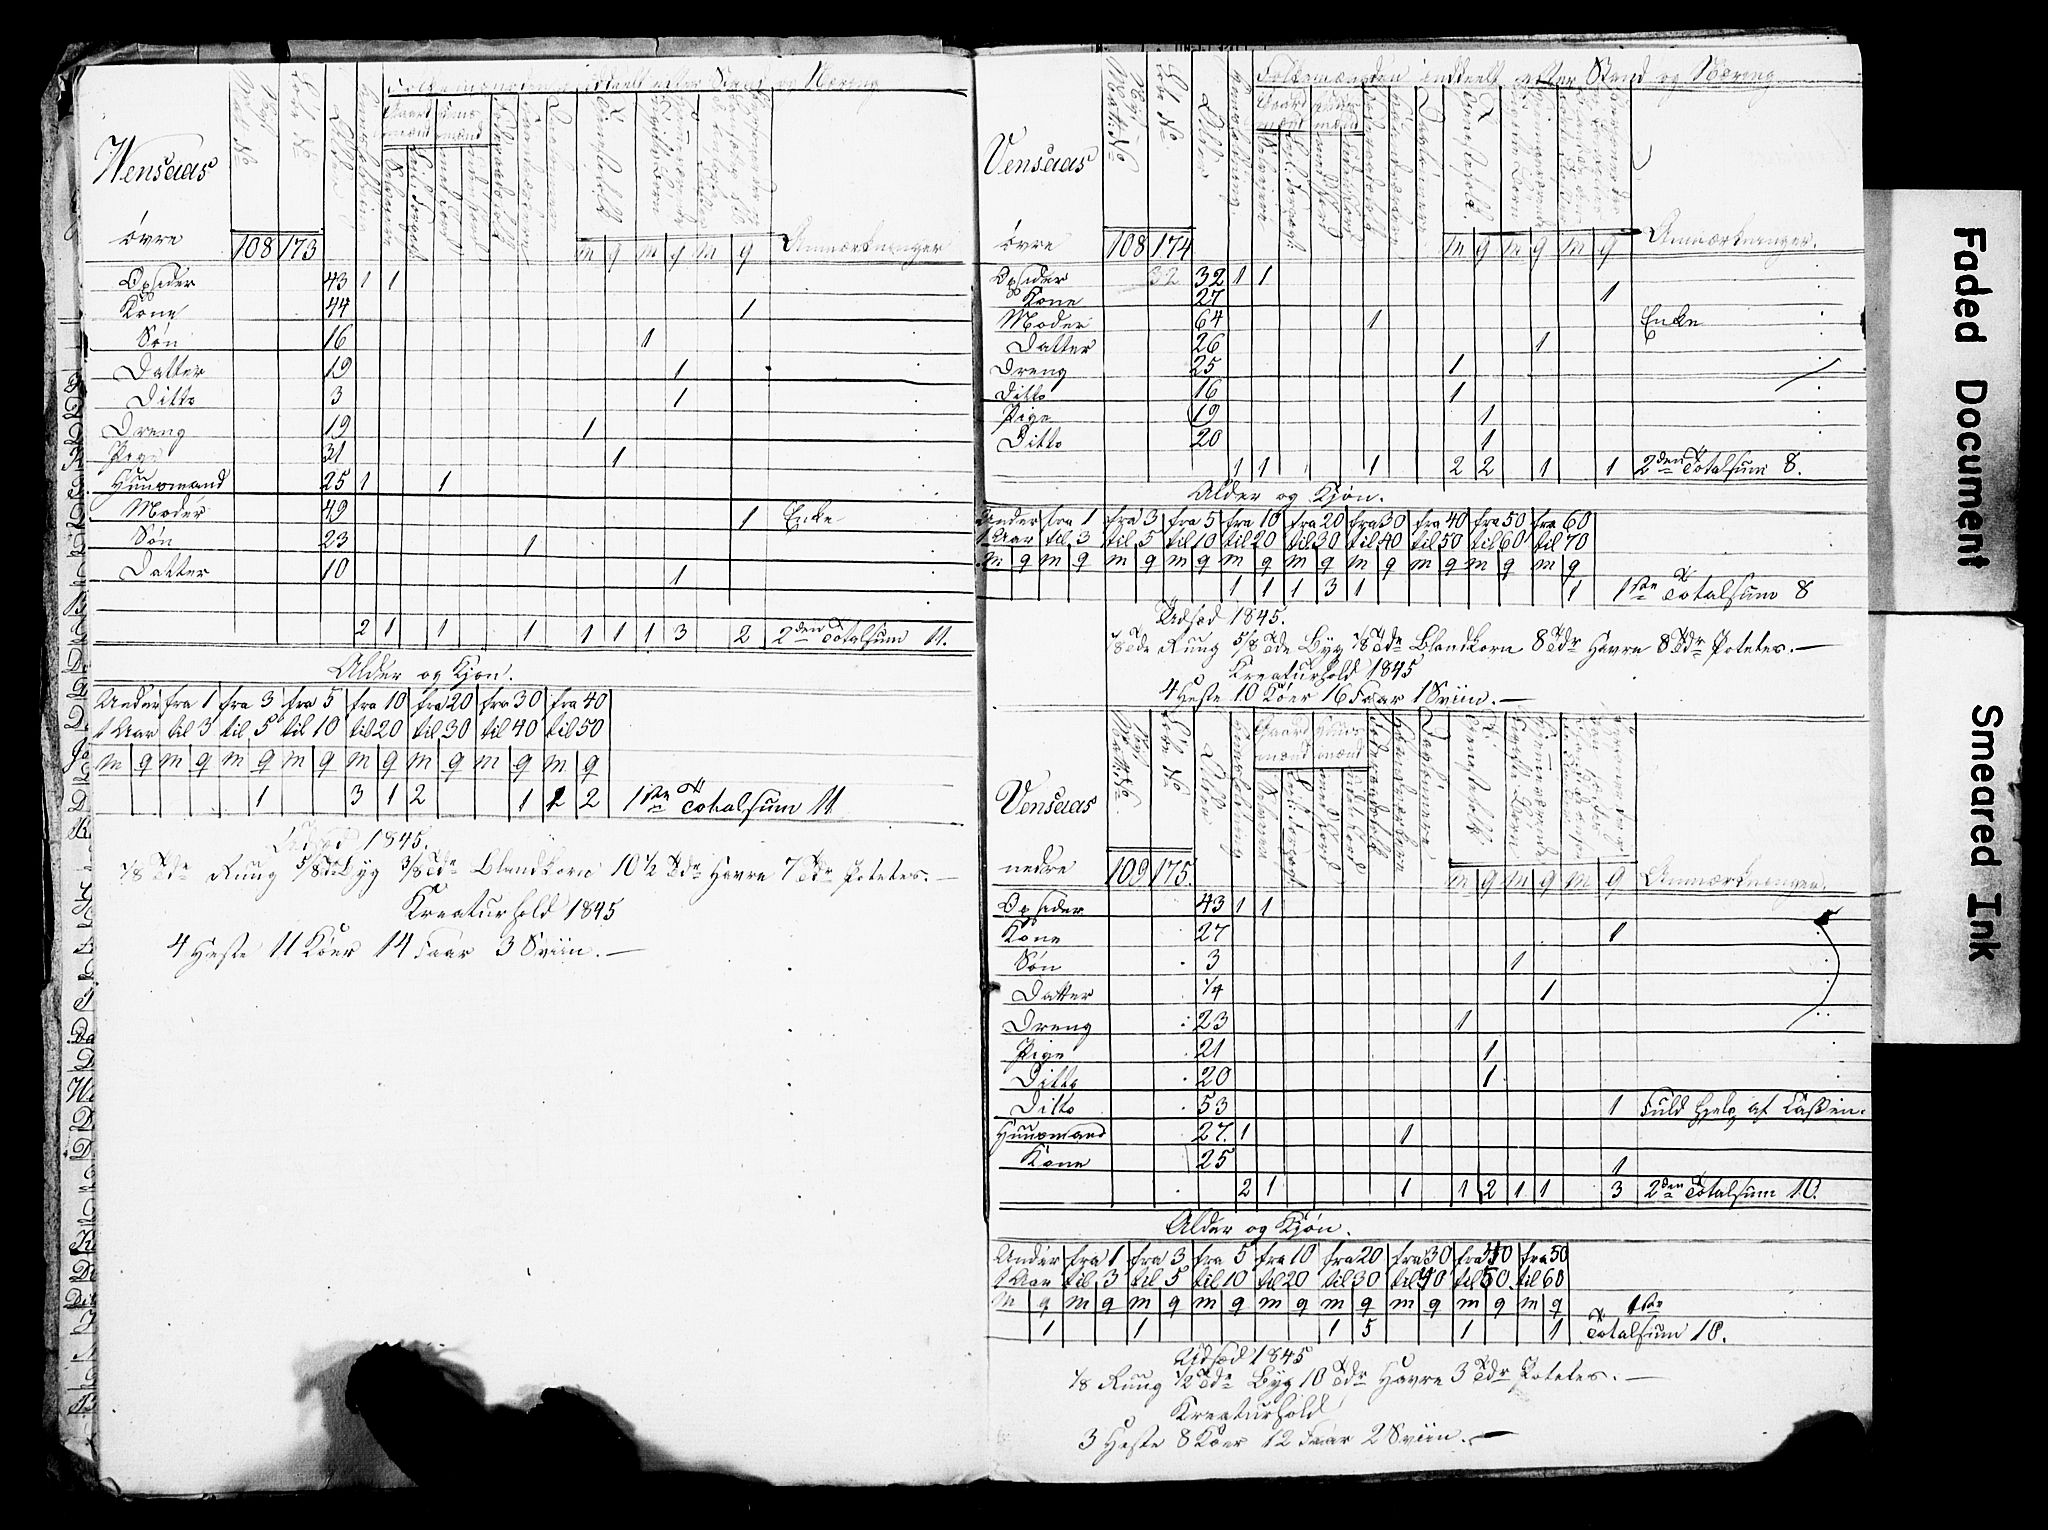 Wensaas
øvre
Matr. No
Løbe No
Alder
108 173
m q m q m q
Anmærkninger
Opsider 43 1 1
Kone 44 1
Søn 16 1
Datter 19 1
Ditto 3 1
Dreng 19 1
Pige 31 1
Huusmand 25 1 1
Moder 49 1 Enke
Søn 23 1
Datter 10 1
2 1 1 1 1 1 1 3 2 2den Totalsum 11.
Alder og Kjøn.
Under fra 1 fra 3 fra 5 fra 10 fra 20 fra 30 fra 40
1 Aar til 3 til 5 til 10 til 20 til 30 til 40 til 50
m q m q m q m q m q m q m q m q
1 3 1 2 1 1 2 1ste Totalsum 11
Udsæd 1845.
1/8 Tde Rug 5/8 Tde Byg 3/8 Tde Blandkorn 10 1/2 Tde Havre 7 Tdr Potetes. —
Kreaturhold 1845
4 Heste 11 Køer 14 Faar 3 Sviin. —
Folkemængden inddeelt efter Stand og Næring
Vensaas
øvre
Løbe No
Alder
108 174
m q m q m q
Anmærkninger.
Opsider 32 32 1 1
Kone 27 1
Moder 64 1 Enke
Datter 26 1
Dreng 25 1
Ditto 16 1
Pige 19 1
Ditto 20 1
1 1 1 2 2 1 1 2den Totalsum 8.
Alder og Kjøn.
Under fra 1 fra 3 fra 5 fra 10 fra 20 fra 30 fra 40 fra 50 fra 60
1 Aar til 3 til 5 til 10 til 20 til 30 til 40 til 50 til 60 til 70
m q m q m q m q m q m q m q m q m q m q
1 1 1 3 1 1 1ste Totalsum 8
Udsæd 1845.
1/8 Tde Rug 5/8 Tde Byg 7/8 Tde Blandkorn 8 Tdr Havre 8 Tdr Potetes. —
Kreaturhold 1845
4 Heste 10 Køer 16 Faar 1 Sviin. —
Vensaas
nedre
Løbe No
Alder
109 175.
m q m q m q
Anmærkninger.
Opsider 43 1 1
Kone 27 1
Søn 3 1
Datter 1/4 1
Dreng 23 1
Pige 21 1
Ditto 20 1
Ditto 53 1 Fuld Hjelp af Cassen.
Huusmand 27. 1 1
Kone 25 1
2 1 1 1 2 1 1 3 2den Totalsum 10.
Alder og Kjøn.
Under fra 1 fra 3 fra 5 fra 10 fra 20 fra 30 fra 40 fra 50
1 Aar til 3 til 5 til 10 til 20 til 30 til 40 til 50. til 60
m q m q m q m q m q m q m q m q m q
1ste
1 1 1 5 1 1 Totalsum 10.
Udsæd 1845
1/8 Rug 1/2 Tde Byg 10 Tdr Havre 3 Tdr Potetes. —
Kreaturhold
3 Heste 8 Køer 12 Faar 2 Sviin. —
Faded Document
Smeared Ink